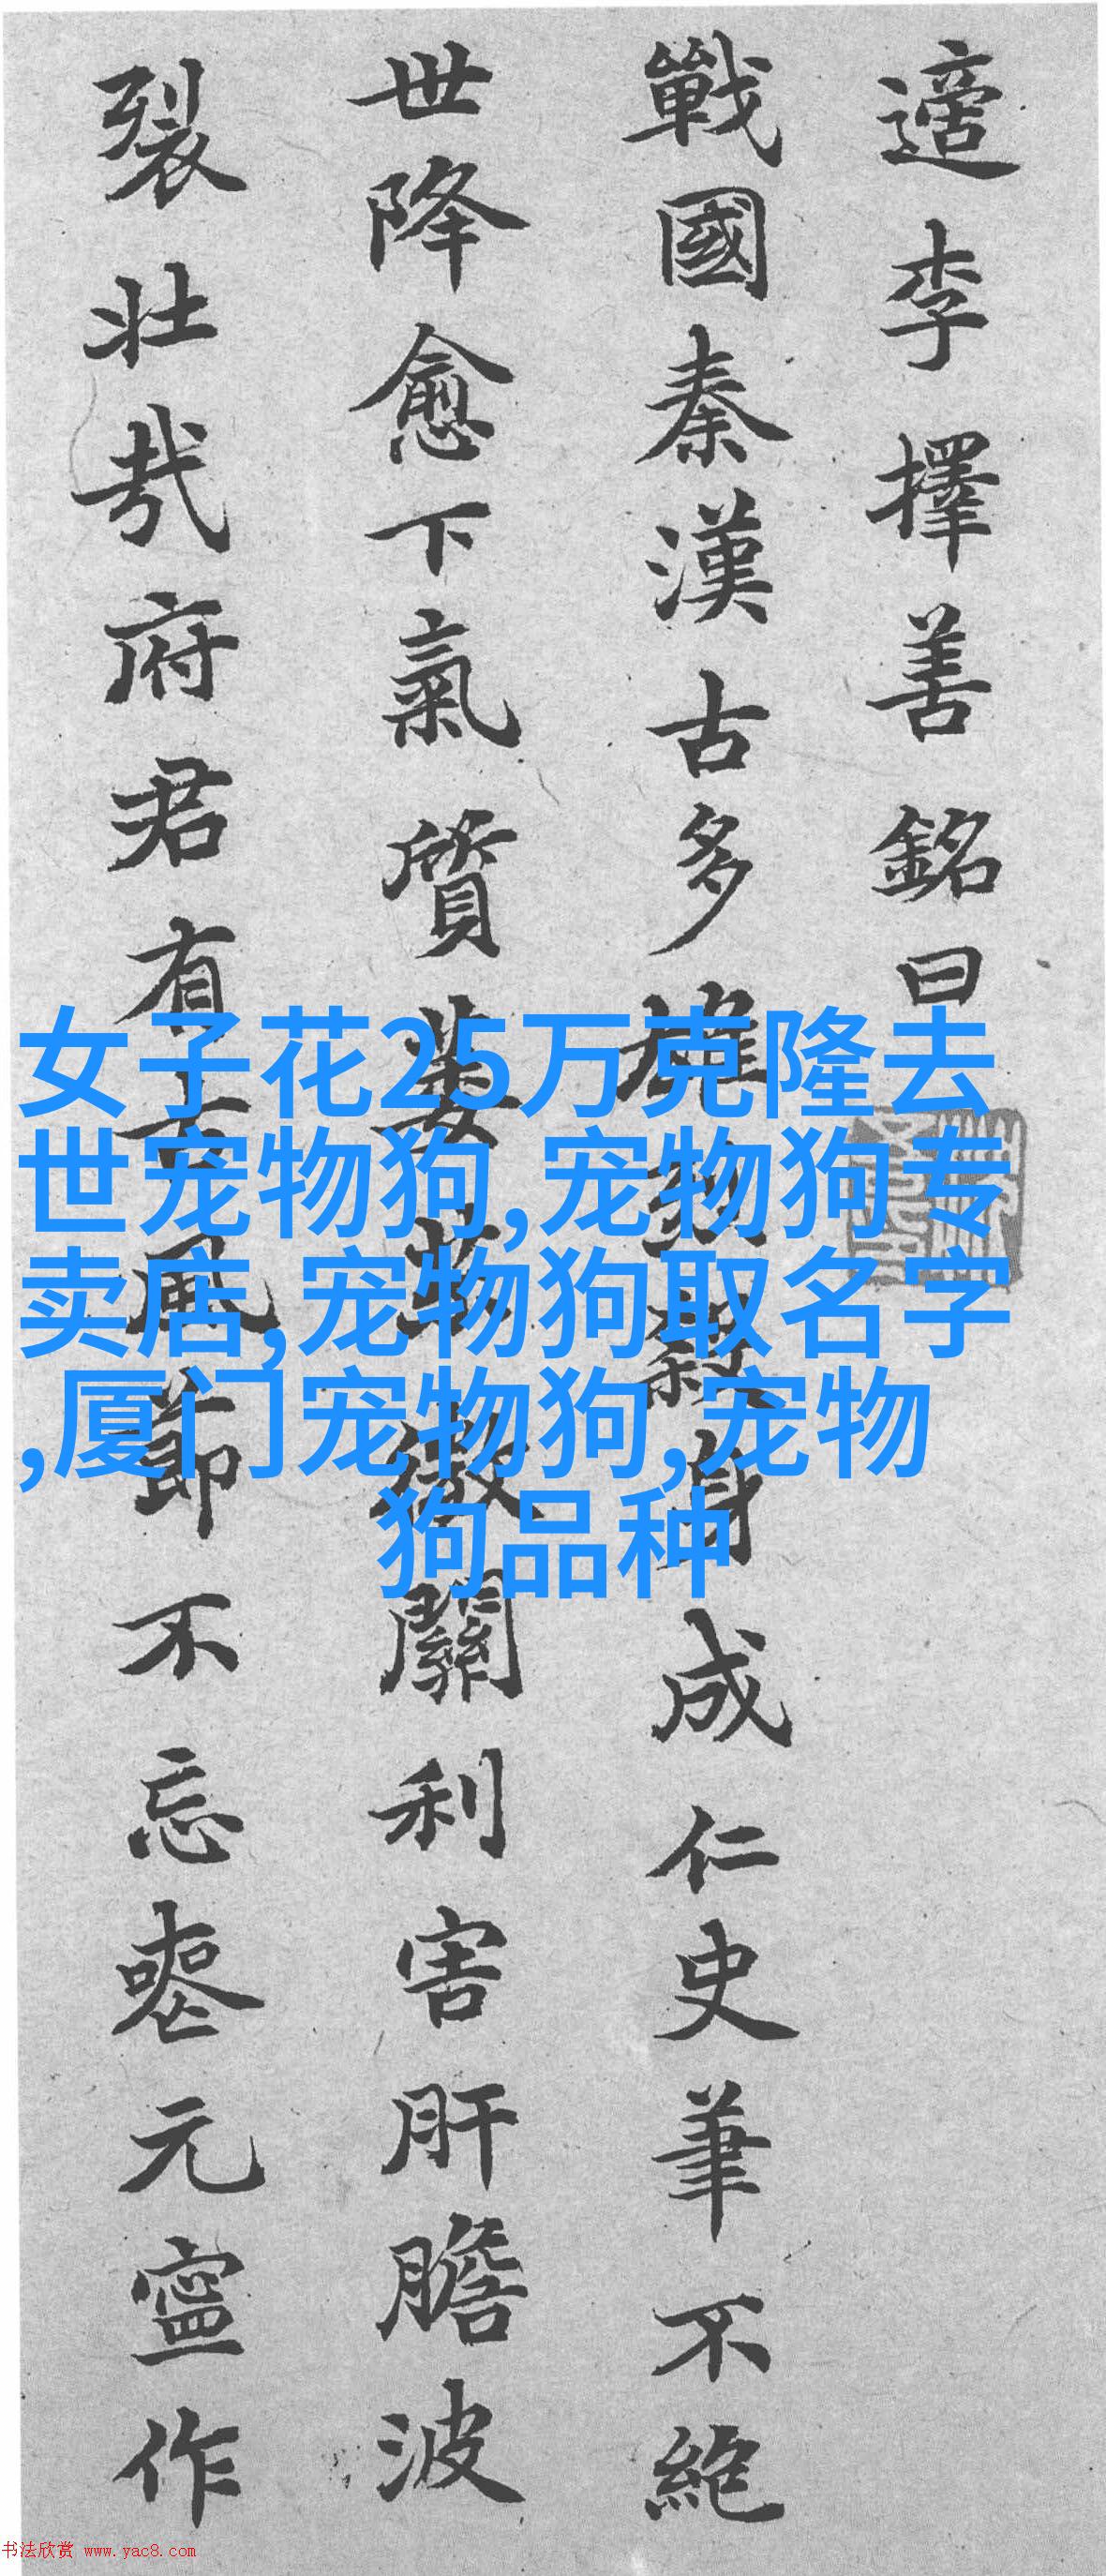 適李擇善銘曰
戰國秦漢古多雄烈殺身成仁史筆不絕
世降愈下氣質關利害肝膽波
裂壯哉府君有風節不忘喪元寧作
女子花25万克隆去
世宠物狗,宠物狗专
卖店,宠物狗取名字
,厦门宠物狗,宠物
狗品种
书法欣赏 www.yac8.com